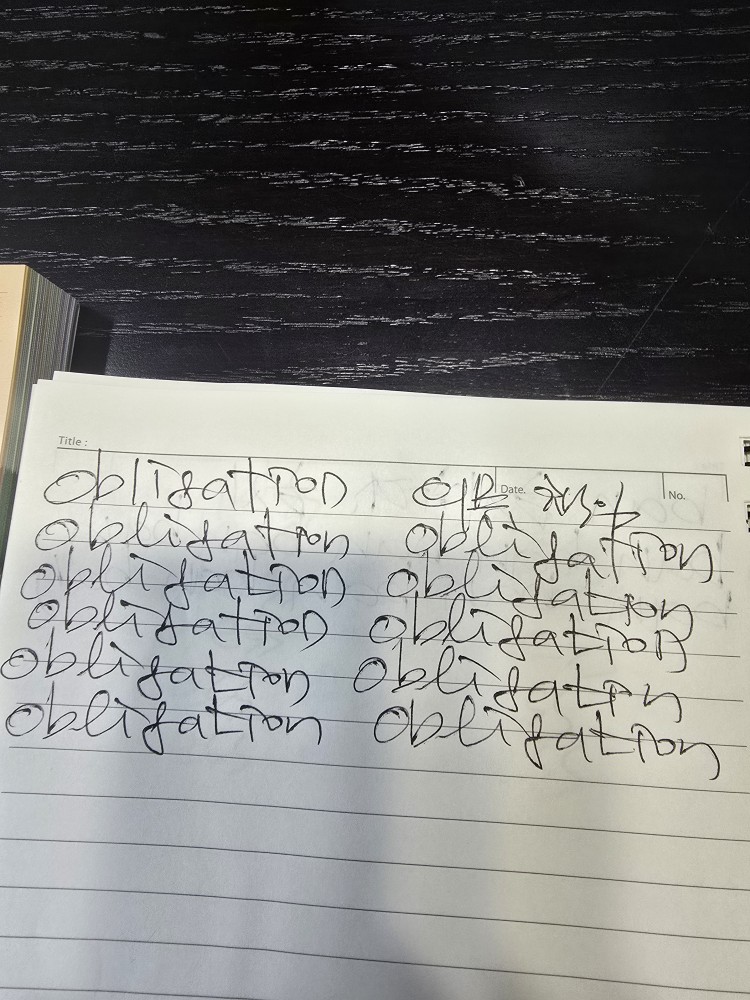 Title :
obligation 의무 Date. 책무 No.
obligation obligation
obligation obligation
obligation obligation
obligation obligation
obligation obligation